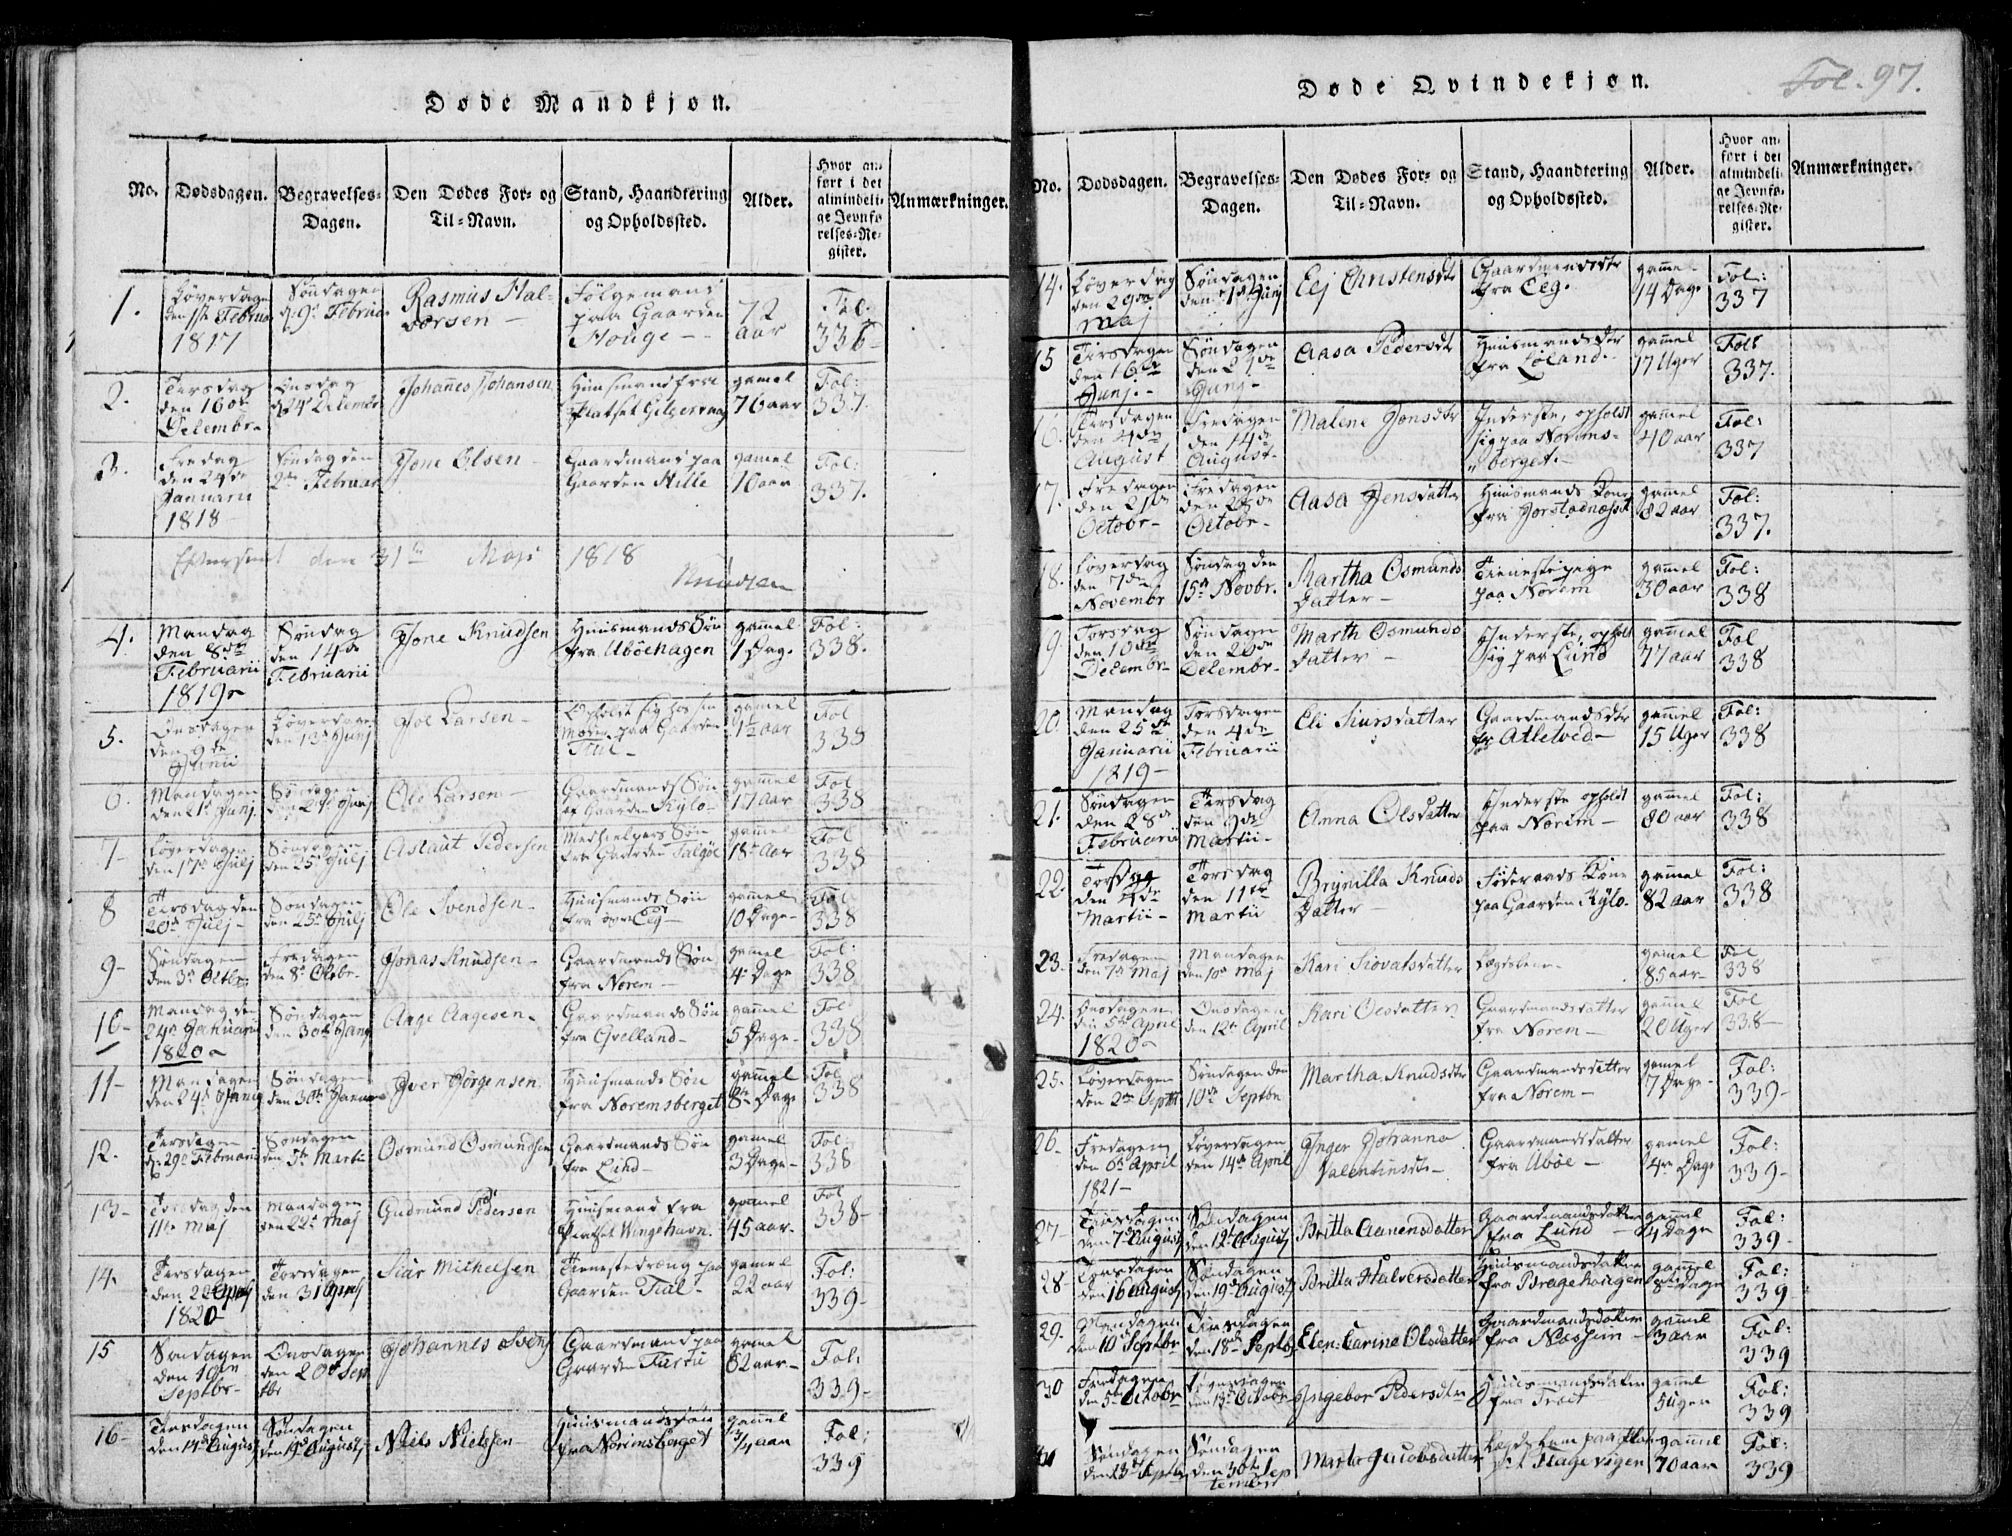 Døde Mandkjøn.
No.
Dødsdagen.
Begravelses-
Dagen.
Den Dødes For- og
Til-Navn.
Stand, Haandtering
og Opholdssted.
Alder.
Hvor an-
ført i det
almindeli-
ge Jevnfø-
relses-Re-
gister.
Anmærkninger.
1.
Løverdagen
den 1ste Februar
1817
Søndagen
d. 9de Februar
Rasmus Hal-
vorsen
Følgemand
paa Gaarden
Houge
72
aar
Fol:
336
2.
Tirsdag
den 16de
Decembr
Onsdag
d. 24de Decembr
Johannes Johansen
Huusmand fra
Platset
gamel
76 aar
Fol:
337
3.
Fredag
den 24de
Januarii
1818
Søndag den
2den Februar
Jone Olsen
Gaardmand paa
Gaarden Hille
gamel
10 aar
Fol:
337.
den 31te Majs 1818
Knudsen
4.
Mandag
den 8de
Februarii
1819
Søndag
den 14de
Februarii
Jone Knudsen
Huusmands Søn
fra Ubøehagen
gammel
1 Dag.
Fol:
338.
5.
Onsdagen
den 9de
Junii
Løverdagen
den 13de Junj
Joe Larsen
Opholdt sig hos sin
Moder paa Gaarden
Tial
gamel
1½ aar
Fol
338
6.
Mandagen
den 21de Junj.
Søndagen
den 27de Junj
Ole Larsen
Gaardmands Søn
af Gaarden Rylo
gammel
17 aar
Fol
338
7
Løverdagen
den 17de Julj
Søndagen
den 25de Julj
Aslaut Pedersen
Medhjelpers Søn
fra Gaarden Talgøe
gammel
18 Aar
Fol
338
8
Tirsdag den
20de Julj
Søndagen
den 25de Julj
Ole Svendsen
Huusmands Søn
fra øvre Eig
gammel
10 Dage
Fol
338
9
Søndagen
den 3de Octbr:
Fredagen
den 8de Octobr.
Jonas Knudsen
Gaardmands Søn
fra Norem
gamel
4 Dage
Fol:
338
10
Mandag den
24de Januarii
1820
Søndagen
den 30te Janr
Aage Aagesen
Gaardmands Søn
fra Qvelland
gammel
5 Dage
Fol
338
11
Mandagen
den 24de Janr
Søndagen
den 30te Januar
Iver Jørgensen
Huusmands Søn
fra Noremsberget
gammel
8te Dage
Fol
338
12.
Tirsdagen
d. 29de Februarii
Søndagen
den 5te Martii
Osmund Osmundsen
Gaardmands Søn
fra Lund
gamel
3 Dage
Fol:
338
13
Torsdag den
11te Maj
Mandagen
den 22de Maj
Gudmund Pedersen
Huusmand fra
Platset Wingehavn.
gamel
45 aar
Fol
338
14.
Tirsdagen
den 22
1820
Torsdagen
den 31
Siur Michelsen
Tienestedreng paa
Gaarden Tial
gamel
22 aar
Fol:
339
15
Søndagen
den 10de
Septbr
Onsdagen
den 20de Sep
tbr
Johannes Svens
Gaardmand paa
Gaarden
gamel
62 aar
Fol:
339
16
Tirsdagen
den 14de August
Søndagen
den 19de August
Niels Nielsen
Huusmands søn
fra Norimsberget
gammel
¾ aar
Fol:
339
Døde Qvindekjøn.
Fol. 97.
No.
Dødsdagen.
Begravelses-
Dagen.
Den Dødes For- og
Til-Navn.
Stand, Haandtering
og Opholdssted.
Alder.
Hvor an-
ført i det
almindeli-
ge Jevnfø-
relses-Re-
gister.
Anmærkninger.
14.
Løverdag
den 29de
Maj
Søndagen
den 1ste Junj
Elj Christensdtr
Gaardmandsdtr
fra Eeg.
gammel
14 Dage
Fol:
337
15
Tirsdagen
den 16de
Junj.
Søndagen
den 24de
Junj
Aasa Pedersdt
Huusmandsdtr
fra Løland
gammel
17 Uger
Fol:
337.
16.
Tirsdagen
den 4de
August
Fredagen
den 14de
August
Malene Jonsdtr
Inderste, opholdt
sig paa Norems-
berget.
gammel
40 aar
Fol:
337
17.
Fredagen
den 21de
Octobr
Fredagen
den 28de
Octobr
Aasa Jensdatter
Huusmands Kone
fra
gamel
82 aar
Fol:
337.
18.
Løverdag
den 7de
Novembr
Søndag den
15de Novbr.
Martha Osmunds
Datter
Tienestepige
paa Norem
gammel
30 aar
Fol:
338
9.
Torsdag
den 10de
Decembr
Søndagen
den 20de
Decembr
Marth Osmunds
datter
Inderste, opholdt
sig paa Lund
gammel
77 aar
Fol
338
20.
Mandag
den 25de
Januarii
1819
Torsdagen
den 4de
Februarii
Eli Siursdatter
Gaardmandsdtr
fra Atletved
gammel
15 Uger
Fol:
338
21.
Søndagen
den 28de
Februarii
Tirsdag
den 9de
Martii
Anna Olsdatter
Inderste opholdt
paa Norem
gammel
80 aar
Fol:
338
22.
Torsdag
den 4de
Martii
Torsdag
den 11te
Martii
Brynilla Knuds
Datter
Føderaads Kone
paa Gaarden Rylo
gammel
82 aar
Fol:
338
23.
Fredagen
den 7de Maj
Mandagen
den 10de Maj
Kari Siovatsdatter
gamel
85 aar
Fol
338
24.
Onsdagen
den 5te April
1820
Onsdagen
den 12te April
Kari Olsdatter
Gaardmandsdatter
fra Norem
gammel
20 Uger
Fol
338
25.
Løverdagen
den 2den Septbr
Søndagen den
10de Septbr
Martha Knudsdtr
Gaardmandsdatter
fra Norem
gamel
7 Dage
Fol:
339
26.
Fredagen
den 6te April
1821
Løverdagen
den 14de April
Inger Johanna
Valentinsdtr
Gaardmandsdatter
fra Ubøe
gamel
4re Dage
Fol:
339
27
Tirsdagen
den 7de August
Søndagen
den 12te August
Britta Aanensdatter
Gaardmandsdatter
fra Lund
gammel
4 Dage
Fol:
339
28
Torsdagen
den 16 August
Søndagen
den 19de August
Britta Halversdatter
Huusmandsdatter
fra Bragehougen
gammel
8te Dage
Fol:
339
29.
Mandagen
den 10de Septbr
Tirsdagen
den 18de Septbr
Elen Carine Olsdatter
Gaardmandsdatter
fra Næssum
gamel
3 aar
Fol:
339
30
Fredagen
den 5te Octobr
Løverdagen
den 13de Octobr
Ingebor Pedersdtr
Huusmandsdatter
fra Træet
gamel
5 Uger
Fol:
339
Søndagen
den 23de Septbr
Søndagen
den 30te Sep
tember
Marta Jacobsdatter
Hagevigen
gammel
70 aar
Fol:
339